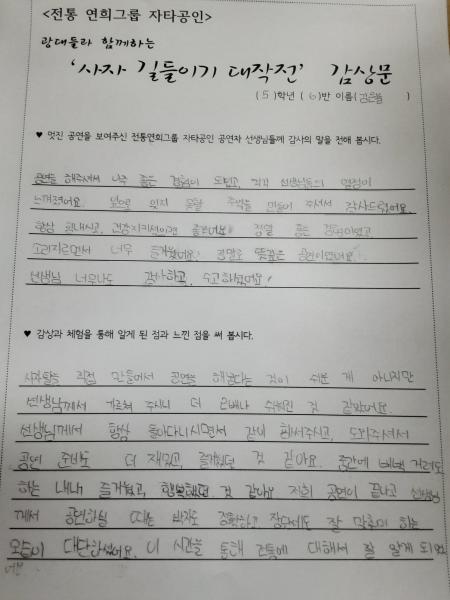 <전통 연희그룹 자타공인>
광대들과 함께하는
'사자 길들이기 대작전' 감상문
(5)학년 (6)반 이름( )
♥ 멋진 공연을 보여주신 전통연희그룹 자타공인 공연자 선생님들께 감사의 말을 전해 봅시다.
공연을 해주셔서 너무 좋은 경험이 되었고, 각각 선생님들의 열정이
느껴졌어요. 앞으로 잊지 못할 추억을 만들어 주셔서 감사드립어요.
항상 힘내시고, 정말 좋은 경험이었고,
소리지르면서 너무 즐거웠어요! 정말로 뜻깊은 공연이었어요.
선생님 너무나도 감사하고, 수고하셨어요!
♥ 감상과 체험을 통해 알게 된 점과 느낀 점을 써 봅시다.
사자탈을 직접 만들어서 공연을 해본다는 것이 쉬운 게 아니지만
선생님께서 가르쳐 주시니 더 쉬워진 것 같았어요.
선생님께서 항상 돌아다니시면서 같이 해주시고, 도와주셔서
공연 준비도 더 재밌고, 즐거웠던 것 같아요. 중간에
하는 내내 즐거웠고, 행복했던 것 같아요 저희 공연이 끝나고 선생님
께서 공연하실 때는 박자도 정확하고, 장단에도 잘 맞춰 하는
모습이 대단하셨어요. 이 시간을 통해 전통에 대해서 잘 알게 되었
어요.